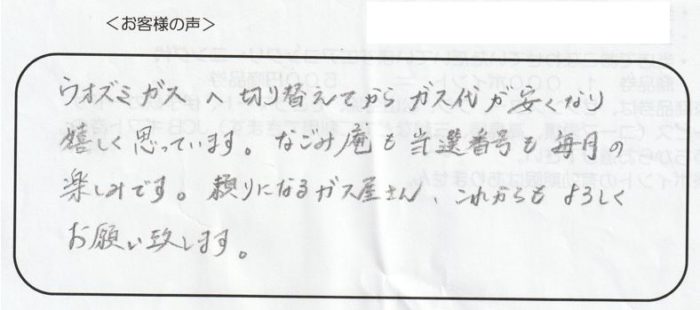 ＜お客様の声＞
ウオズミガスへ切り替えてからガス代が安くなり
嬉しく思っています。なごみ庵も当選番号も毎月の
楽しみです。頼りになるガス屋さん、これからもよろしく
お願い致します。